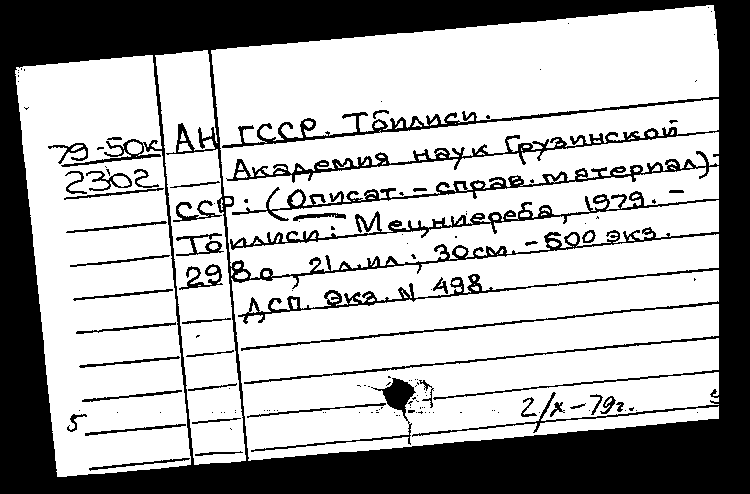 79-50к АН ГССР. Тбилиси.
2302 Академия наук Грузинской
ССР: (Описат.-справ. материал):
Тбилиси: Мецниереба, 1979. –
298 с, 21 л.ил; 30 см. – 500 экз.
ДСП. Экз. N 498.
5 2/х – 79г.